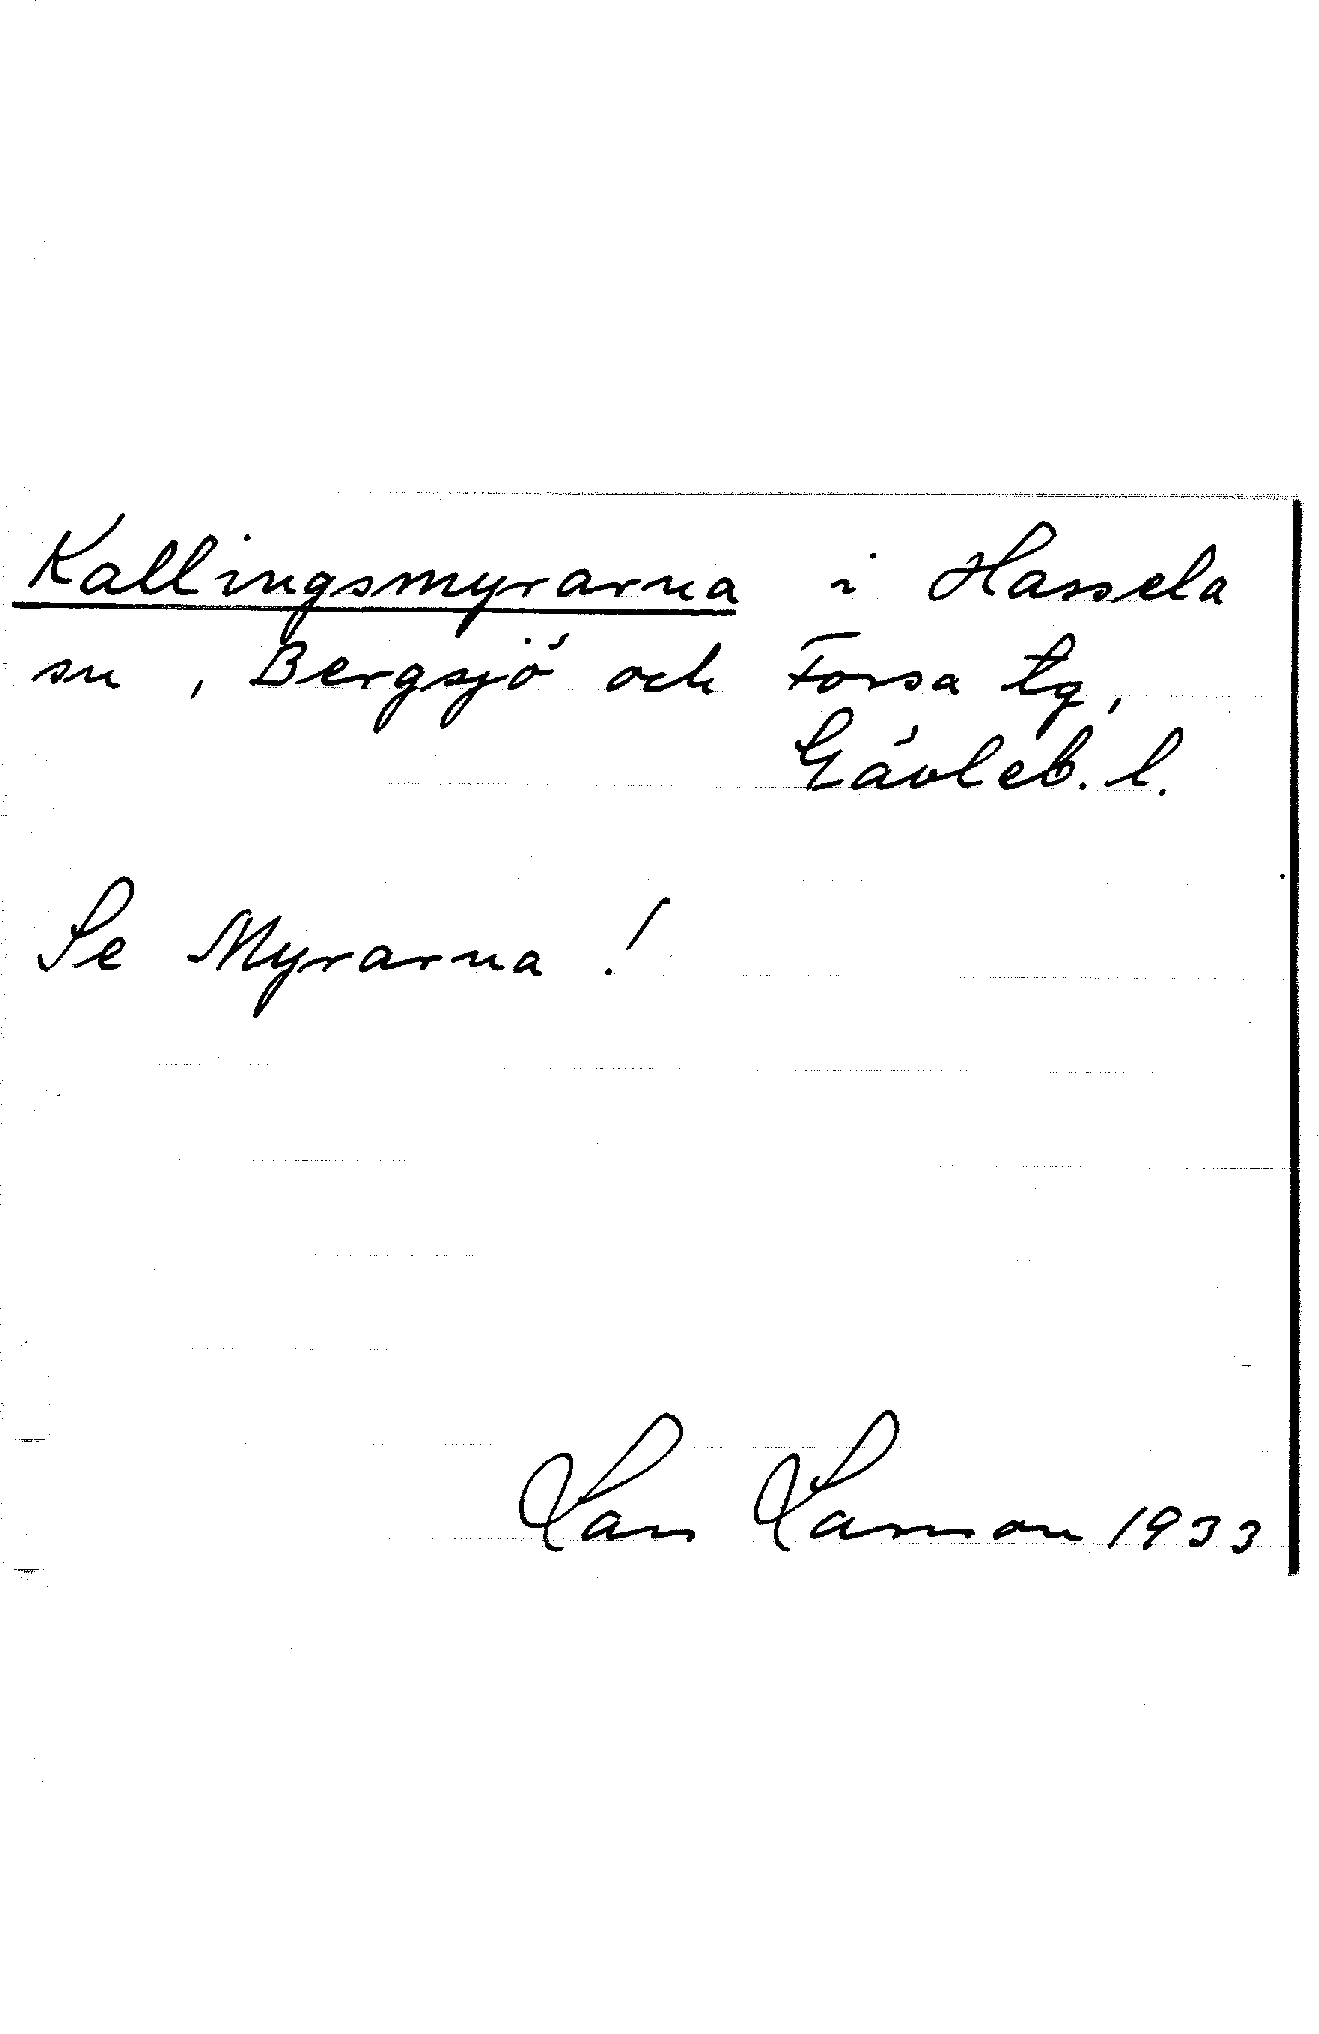 Kallingsmyrarna i Hassela
sn, Bergsjö och Forsa tg,
Gävleb. l.
Se Myrarna!
Lars Larsson 1933